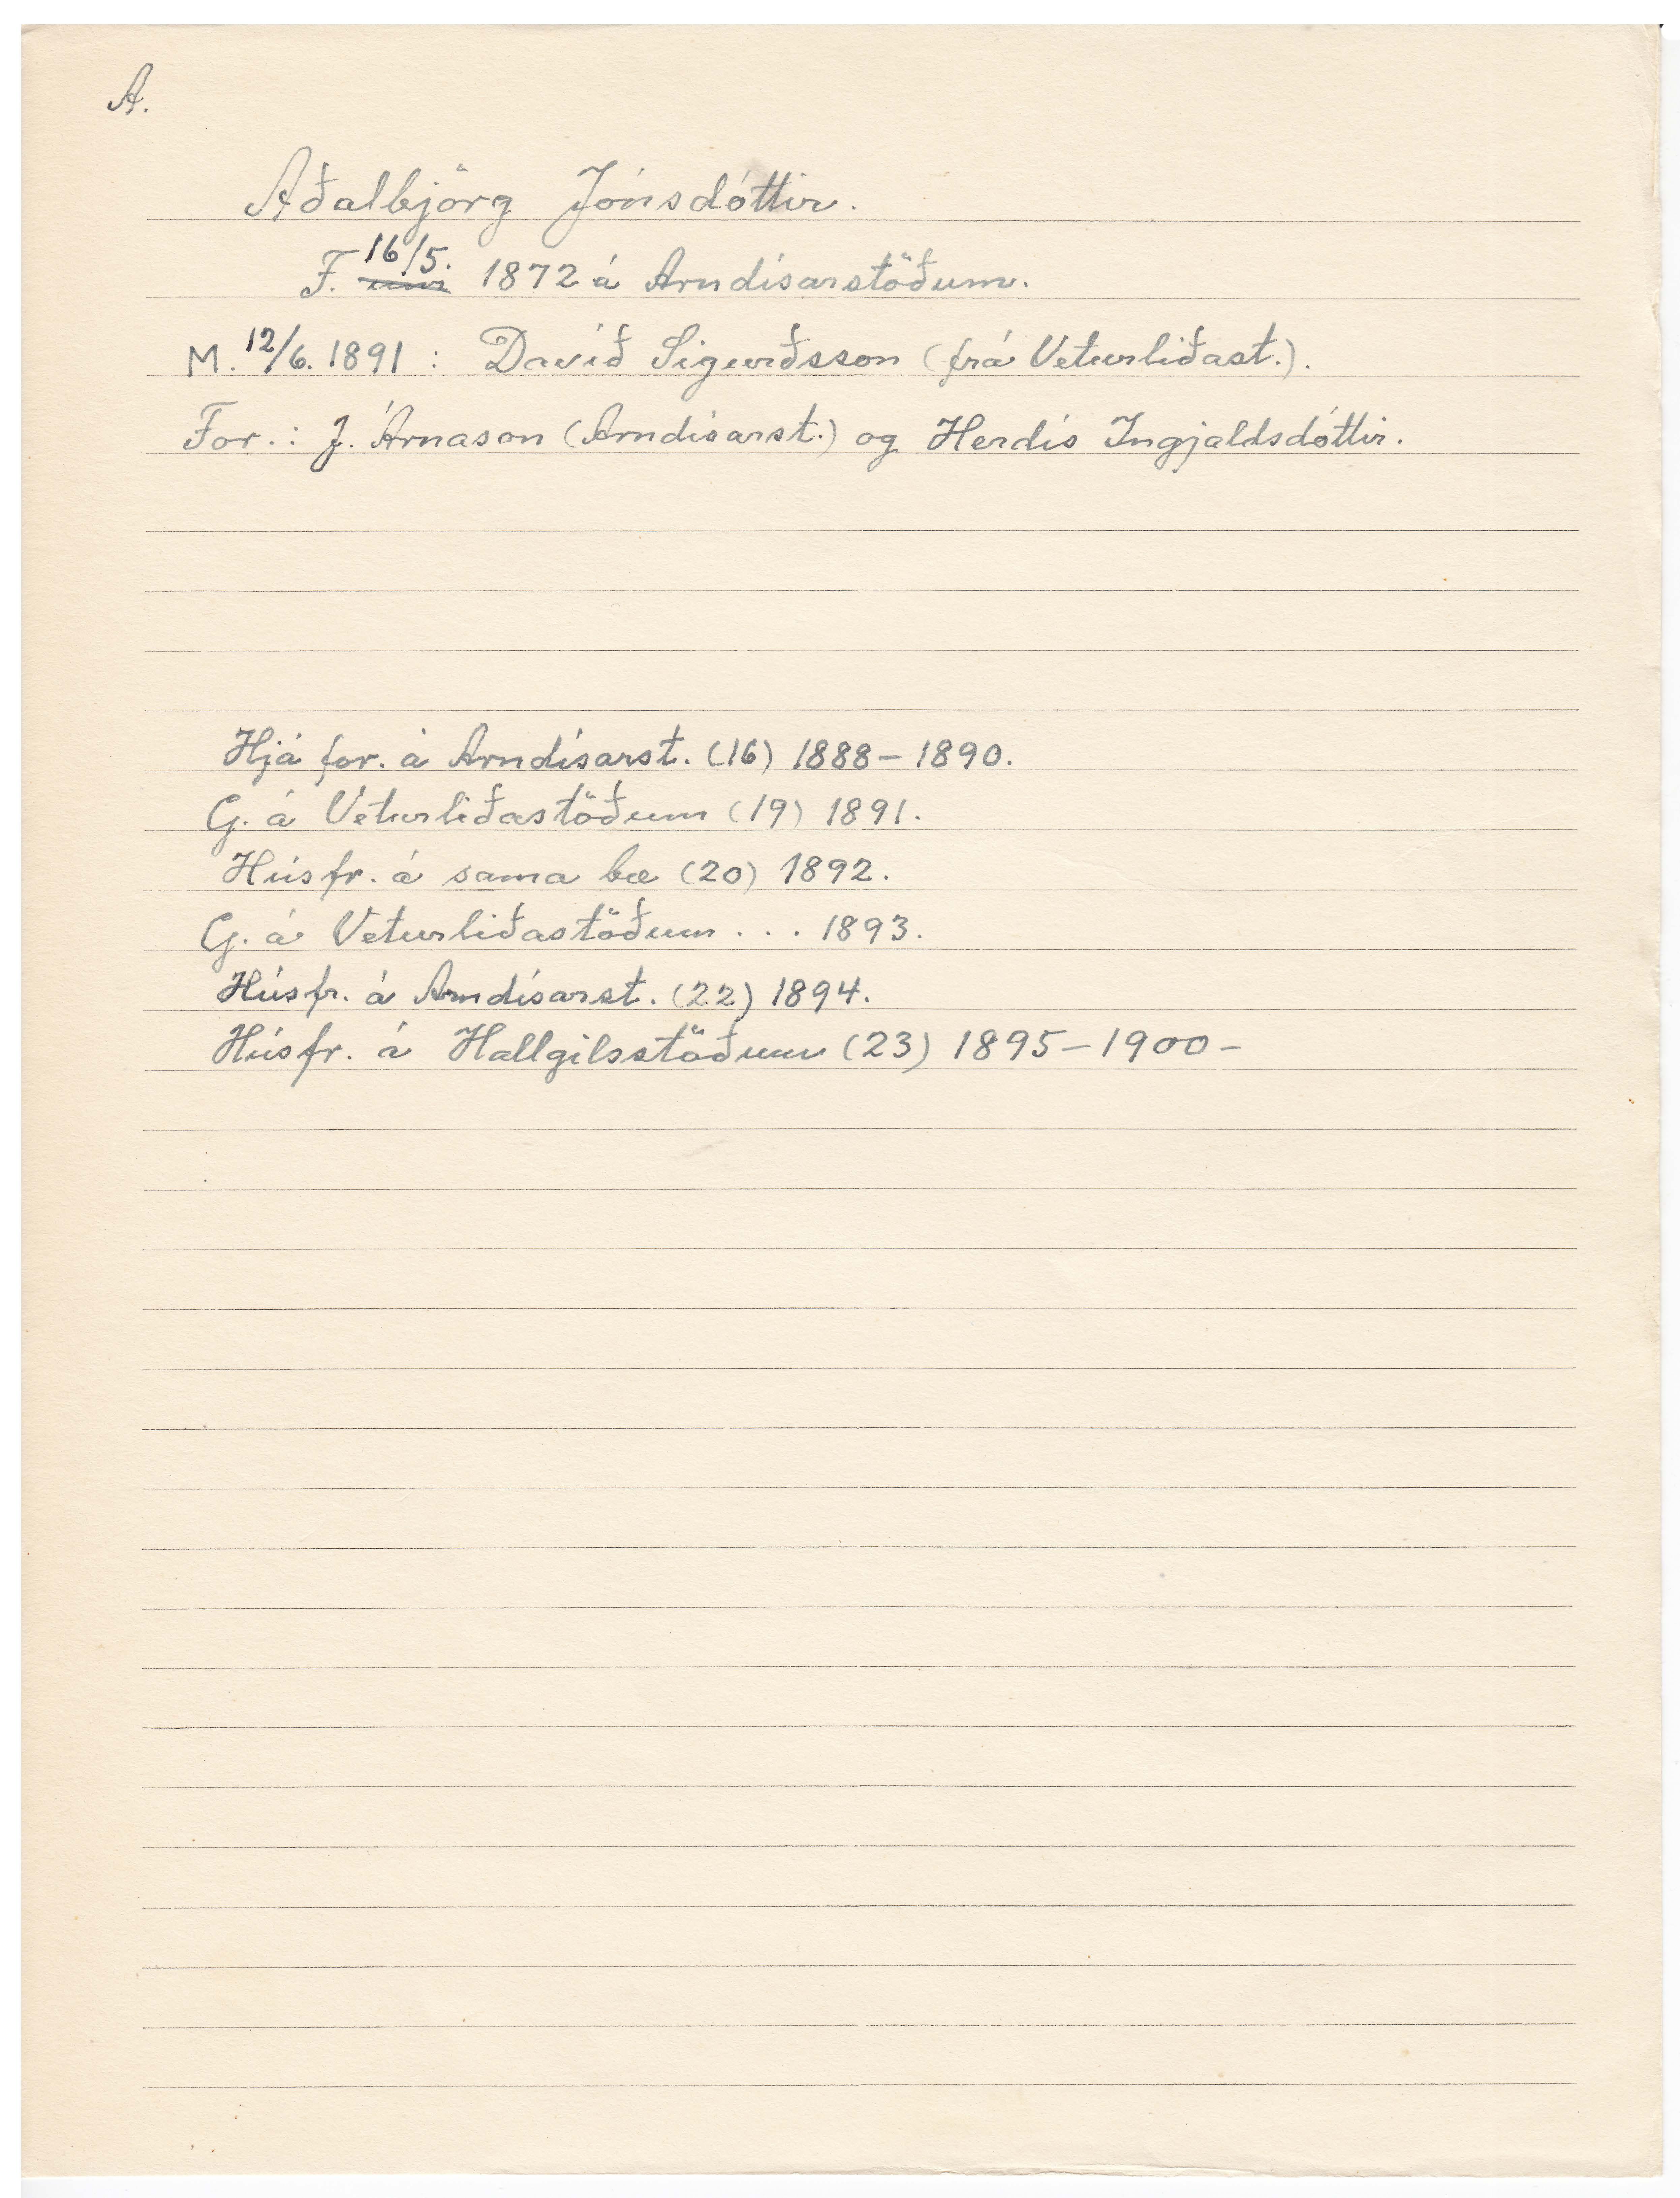 A.
Aðalbjörg Jónsdóttir.
16/5.
F. 1872 á Arndísarstöðum.
M. 12/6. 1891 : Davíð Sigurðsson (frá Veturliðast.).
For.: J. Árnason (Arndísarst.) og Herdís Ingjaldsdóttir.
Hjá for. á Arndísarst. (16) 1888-1890.
G. á Veturliðastöðum (19) 1891.
Húsfr. á sama bæ (20) 1892.
G. á Veturliðastöðum . . . 1893.
Húsfr. á Arndísarst. (22) 1894.
Húsfr. á Hallgilsstöðum (23) 1895-1900-